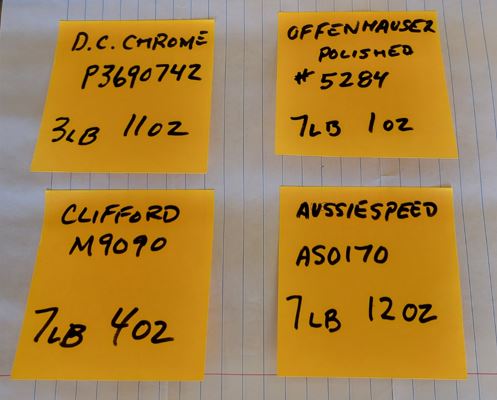 D.C. CHROME
P3690742
3LB 11OZ
OFFENHAUSER
POLISHED
#5284
7LB 1OZ
CLIFFORD
M9090
7LB 4OZ
AUSSIESPEED
AS0170
7LB 12OZ